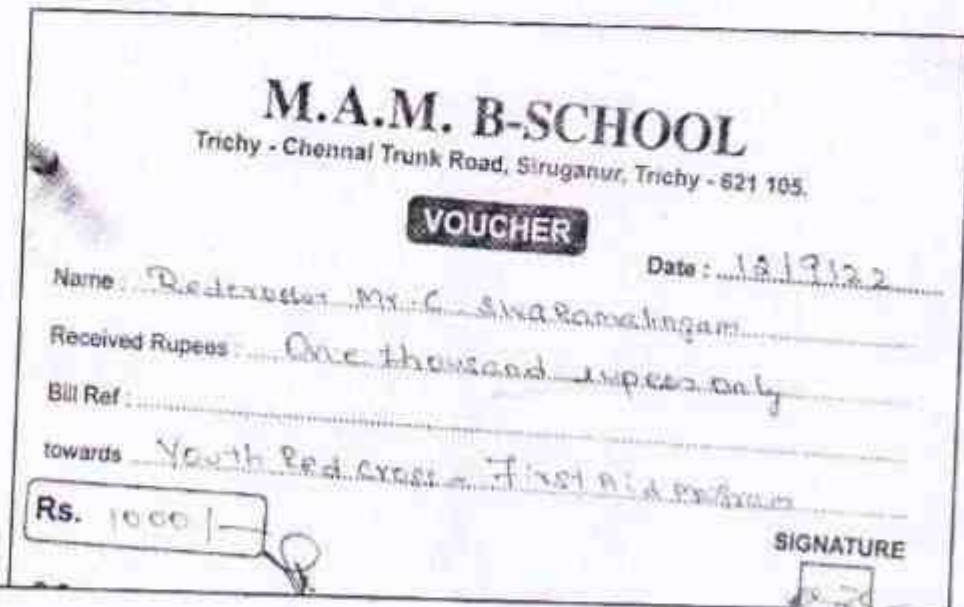 M.A.M. B-SCHOOL
Trichy - Chennai Trunk Road, Siruganur, Trichy - 621 105.
VOUCHER
Date : 12/9/22
Name : Mr. C. Sivaramalingam
Received Rupees : One thousand rupees only
Bill Ref :
towards Youth Red cross - First Aid program
Rs. 1000/-
SIGNATURE